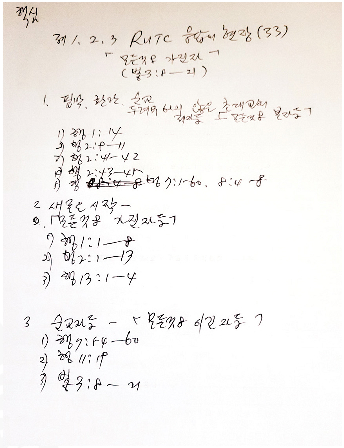 핵심
제 1, 2, 3 RUTC 응답의 현장 (33)
「모든것을 가진자」
(빌3:8-21)
1. 핍박, 환난, 순교
두려워 하지 않은 초대교회
모든것을
1) 행 1:14
2) 행 2:9-11
3) 행 2:41-42
4) 행 2:43-45
5) 행 7:1-60, 8:4-8
2. 새로운 시작 -
「모든것을 가진자들」
1) 행 1:1-8
2) 행 2:1-13
3) 행 13:1-4
3 순교자들 - 「모든것을 이긴자들」
1) 행 7:54-60
2) 행 11:19
3) 빌 3:8-21